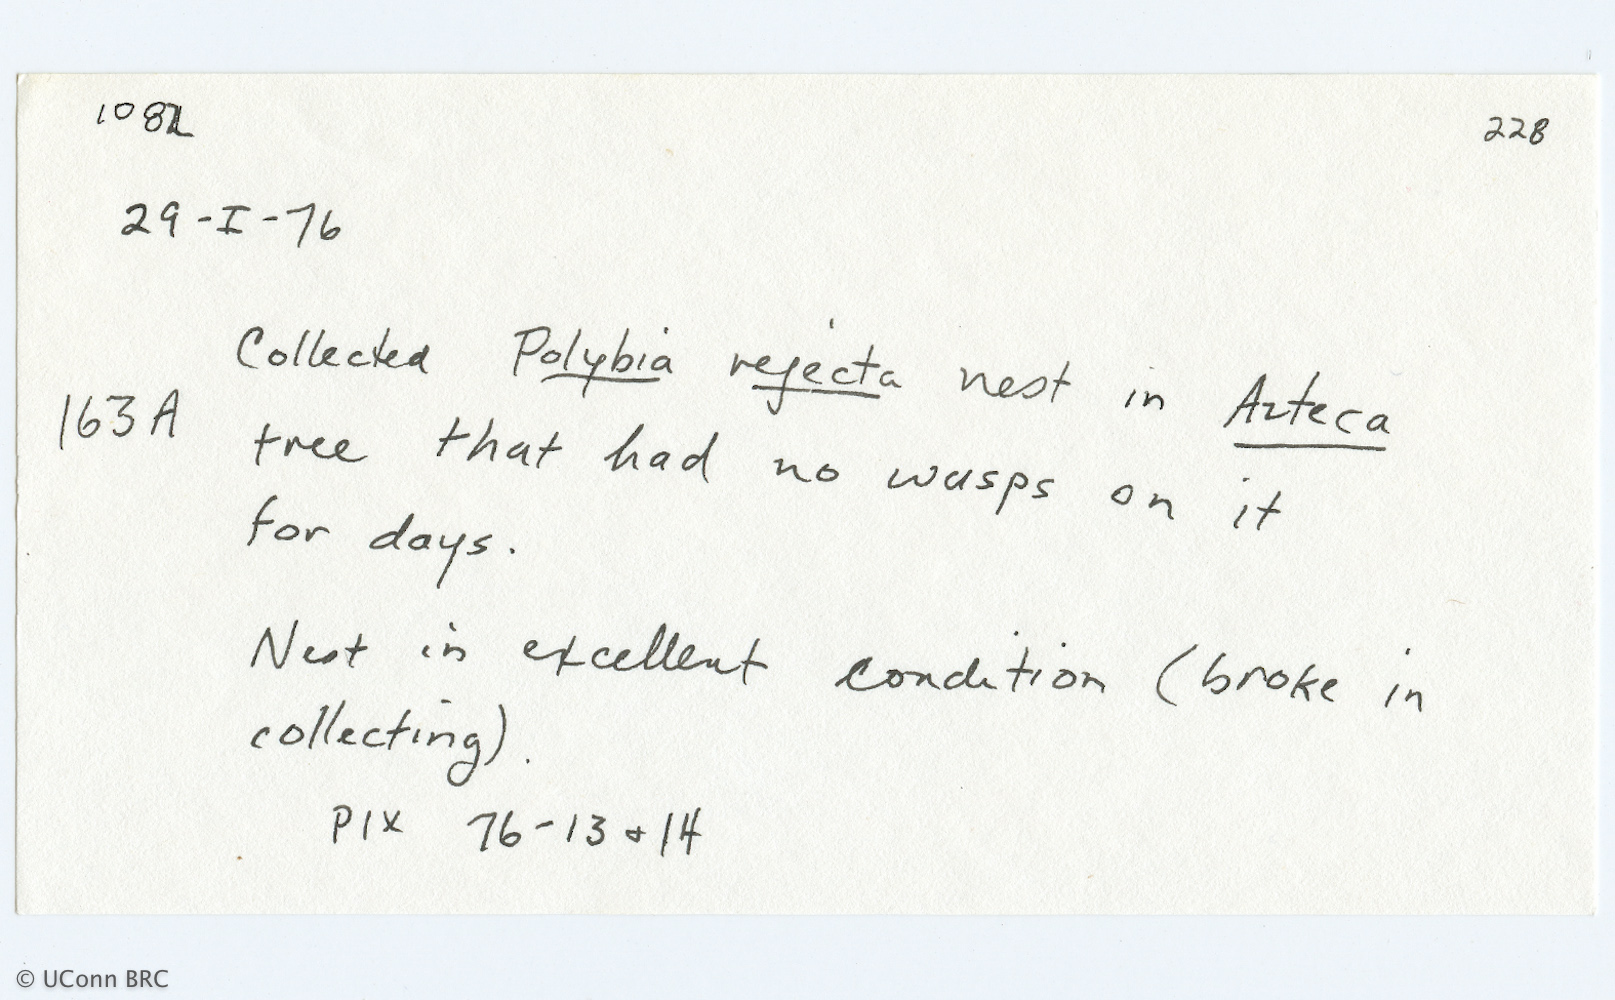 1082
228
29-I-76
Collected Polybia rejecta nest in Azteca
163A tree that had no wasps on it
for days.
Nest in excellent condition (broke in
collecting).
PIX 76-13 & 14
© UConn BRC